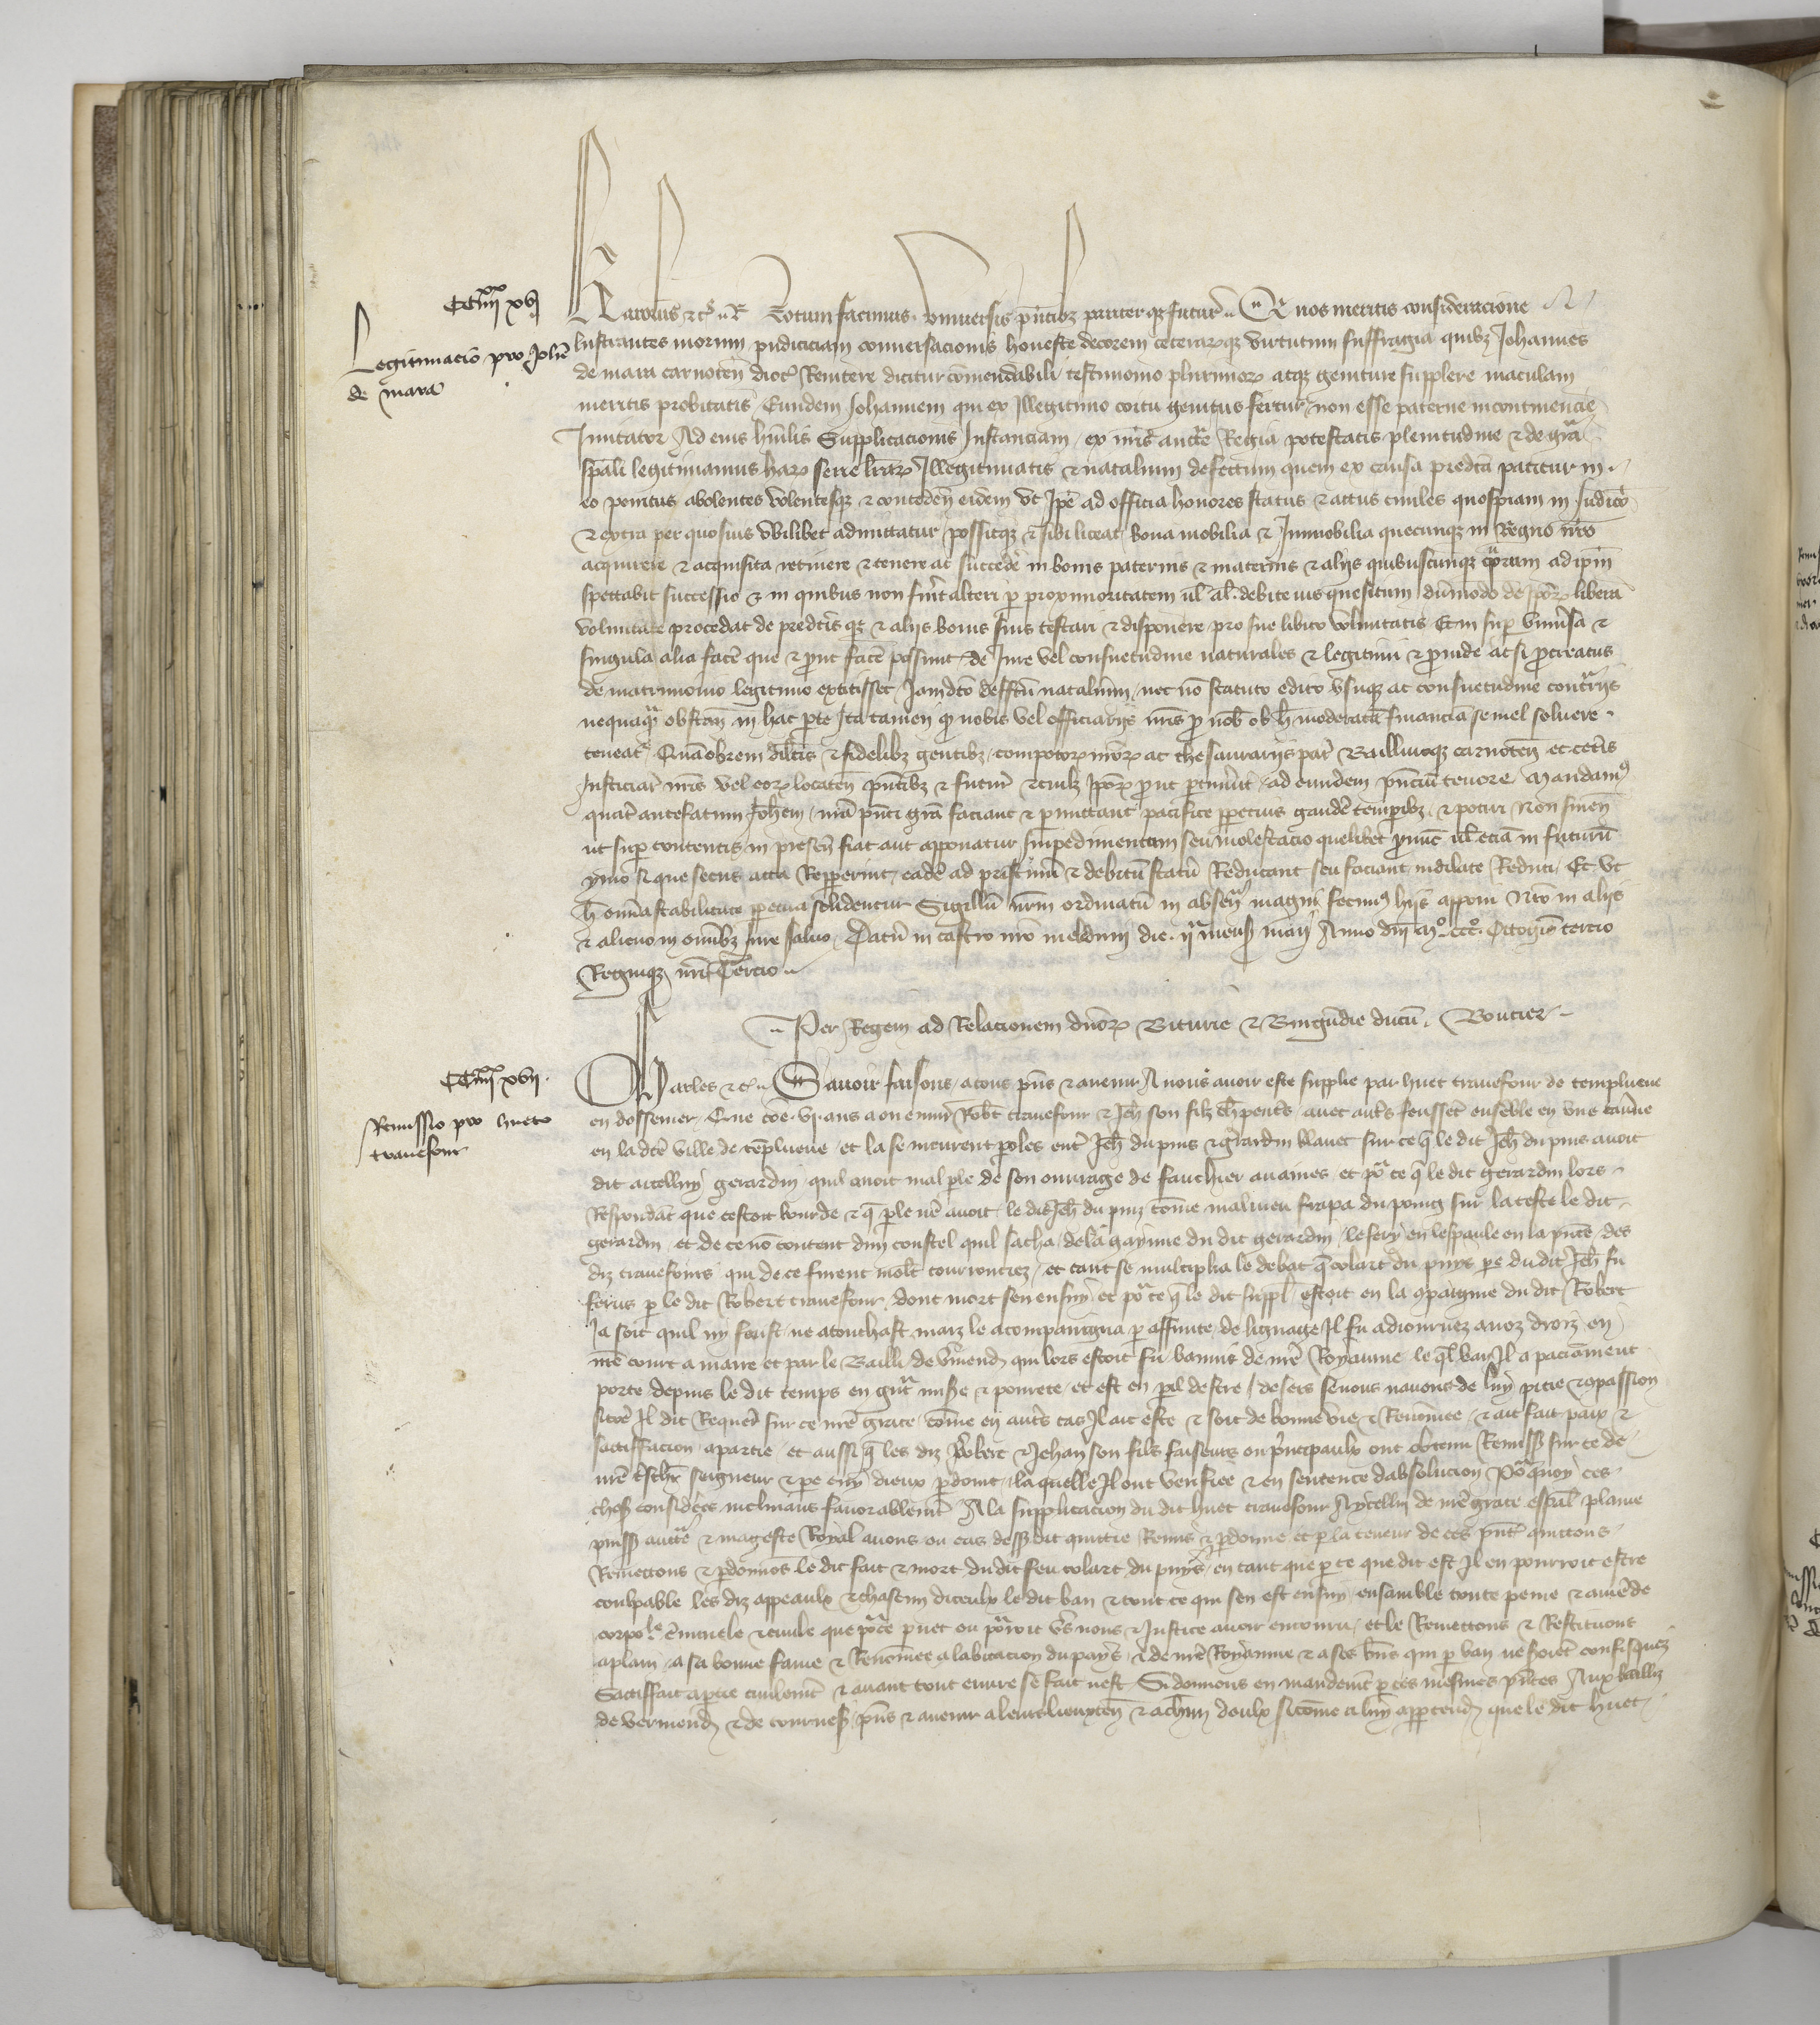 CCIIIIxx xvj
Legitimacio pro Johe
de mara
Karolus etc. Notum facimus universis pntibz pariter qz futur. Qr nos meritis consideracione
lustrantes morum pudiciciam conversacionis honeste decorem ceterarqz virtutum suffragia quibz Johannes
de mara carnoten dioc Renitere dicitur comendabili testimonio plurimor atqz geniture supplere maculam
meritis probitatis Eundem Johannem qui ex Illegitimo coitu genitus fertur non esse paterne incontinencie
Imitator Ad eius humilis Supplicacionis Instanciam ex nris aucte Regia potestatis plenitudine et de gra
spali legitimamus har serie lrar Illegitimatis et natalium defectum quem ex causa predca patitur in
eo penitus abolentes volentesqz et conceden eidem ut Ipe ad officia honores status et actus civiles quospiam in Judico
et extra per quosvis ubilibet admittatur possitqz et sibi liceat bona mobilia et Immobilia quecunqz in Regno nro
acquirere et acquisita retinere et tenere ac succede in bonis paternis et maternis et aliis quibuscunqz quorum ad ipm
spectabit successio et in quibus non fuit alteri p proximioritatem vl al debite ius quesitum dumodo de por libera
voluntate procedat de predcis qz et aliis bonis suis testari et disponere pro sue libito voluntatis Et in sup universa et
singula alia face que et punt face possunt de Jure vel consuetudine naturales et legitimi et pinde ac si pcreatus
de matrimonio legitimo extitisset Jamdco defectu natalium nec no statuto edicto usuqz ac consuetudine contrijs
nequaqm obstan in hac pte Ita tamen q nobis vel officiarijs nris p nob ob h moderatam financia semel solvere
teneat Quaobrem dilcis et fidelibz gentibz compotor nror ac thesaurarijs par Baillivoqz carnoten et ceteris
Justiciar nris vel eor locaten pntibz et futur et cuilz Ipor prout ptinuit ad eundem pncium tenore Mandam9
quatin antefatum Johem nra pnti gra faciant et pmittant pacifice ppetuis gaude tempibz et potiri Non sinen
ut sup contentis in presen fiat aut apponatur Impedimentum seu molestacio quelibet nunc vel ecia in futuru
ymo si que secus acta Repperint eade ad pristinu et debitu statu Reducant seu faciant indilate Reduci Et ut
h oma stabilitate ppetua solidentur Sigillu nrm ordinatu in absen magni fecim9 hiis apponi Nro in aliis
et alieno in omibz iure salvo Datu in castro nro meledum die ija mens maij Anno dni mo ccco Octogio tercio
Regniqz nri Tercio
Per Regem ad Relacionem dnor Biturie et Burgundie ducu. Boutier
CCIIIIxx xvij
Remissio pro hueto
travefour
Charles etc. Savoir faisons atous pns et avenir A nous avoir este supplie par huet travefour de templueve
en dossemer Que coe vi ans a ou envir Robt travefour et Jeh son filz chpente avec aute feusset enseble en une taverne
en la dce ville de templueve et la se meurent poles ent Jeh dupuis et gerardin blavet sur ce q le dit Jeh dupuis avoit
dit aicelluy gerardin quil avoit mal ple de son ouvrage de fauchier avaines et por ce q le dit gerardin lors
Respondat que cestoit bourde et q ple nen avoit le dit Jeh du puy come malmeu frapa du poing sur la teste le dit
gerardin et de ce no content dun coustel quil sacha de la gayinne du dit gerardin le fery en lespaule en la pnce des
diz travefours qui de ce furent molt courrouciez et tant se multiplia le debat q Colart du puys pe du dit Jeh fu
ferus p le dit Robert travefour dont mort sen ensuy et por ce q le dit suppl estoit en la opaignie du dit Robert
Ja soit quil ny ferist ne atouchast maiz le acompaingna p affinite de lignage Il fu adiournez a noz droiz en
nre court a marre et par le Bailli de Vermend qui lors estoit fu bannis de nre Royaume le ql ban Il a paciament
porte depuis le dit temps en gnt mise et povrete et est en pil destre deserS se nous navons de luy pitie et opassion
sicoe Il dit Requer sur ce nre grace come en auts cas Il ait este et soit de bonne vie et Renomee et ait fait paix et
satisfacion a partie et aussi q les diz Robert et Jehan son filz faiseurs ou pncipaulx ont obtenu Remiss sur ce de
nre tschr seigneur et pe cuy dieux pdoint laquelle Il ont verifiee et en sentence dabsolucion Por quoy ces
choses consideres inclinans favorablemt A la supplicacion du dit huet travefour Aycelluy de nre grace espal plaine
puiss aucte et mageste Royal avons ou cas dessdit quittie Remis et pdonne et p la teneur de ces pnt quittons
Remettons et pdonnos le dit fait et mort du dit feu colart du puys en tant que p ce que dit est Il en pourroit estre
coulpable les diz appeaulx et chascun diceulx le dit ban et tout ce qui sen est ensuy ensamble toute peine et amede
corpole criminele et civile que por ce puet ou porroit vs nous et Justice avoir encouru et le Remettons et Restituont
aplain a sa bonne fame et Renomee a labitacion du pays et de nre Royaume et a ses bns qui p ban ne soiet confisquez
Satisffait aptie civilemt et avant tout euvre se fait nest Si donnons en mandemt p ces mesmes pntes Aux bailliz
de Vermend et de tournes pns et avenir a leurs lieuxten et a chun deulx sicome a luy apptend que le dit huet